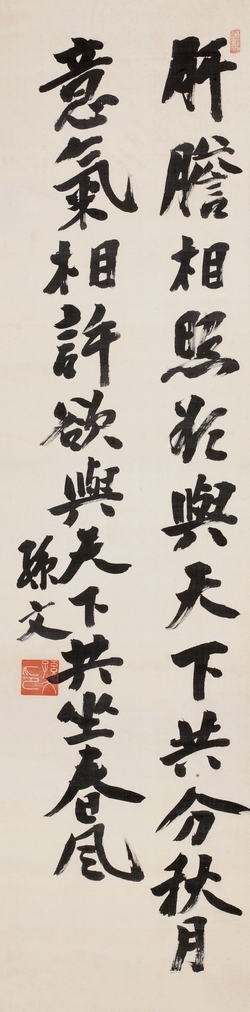 肝膽相照欲與天下共分秋月
意氣相許欲與天下共坐春風
孫文